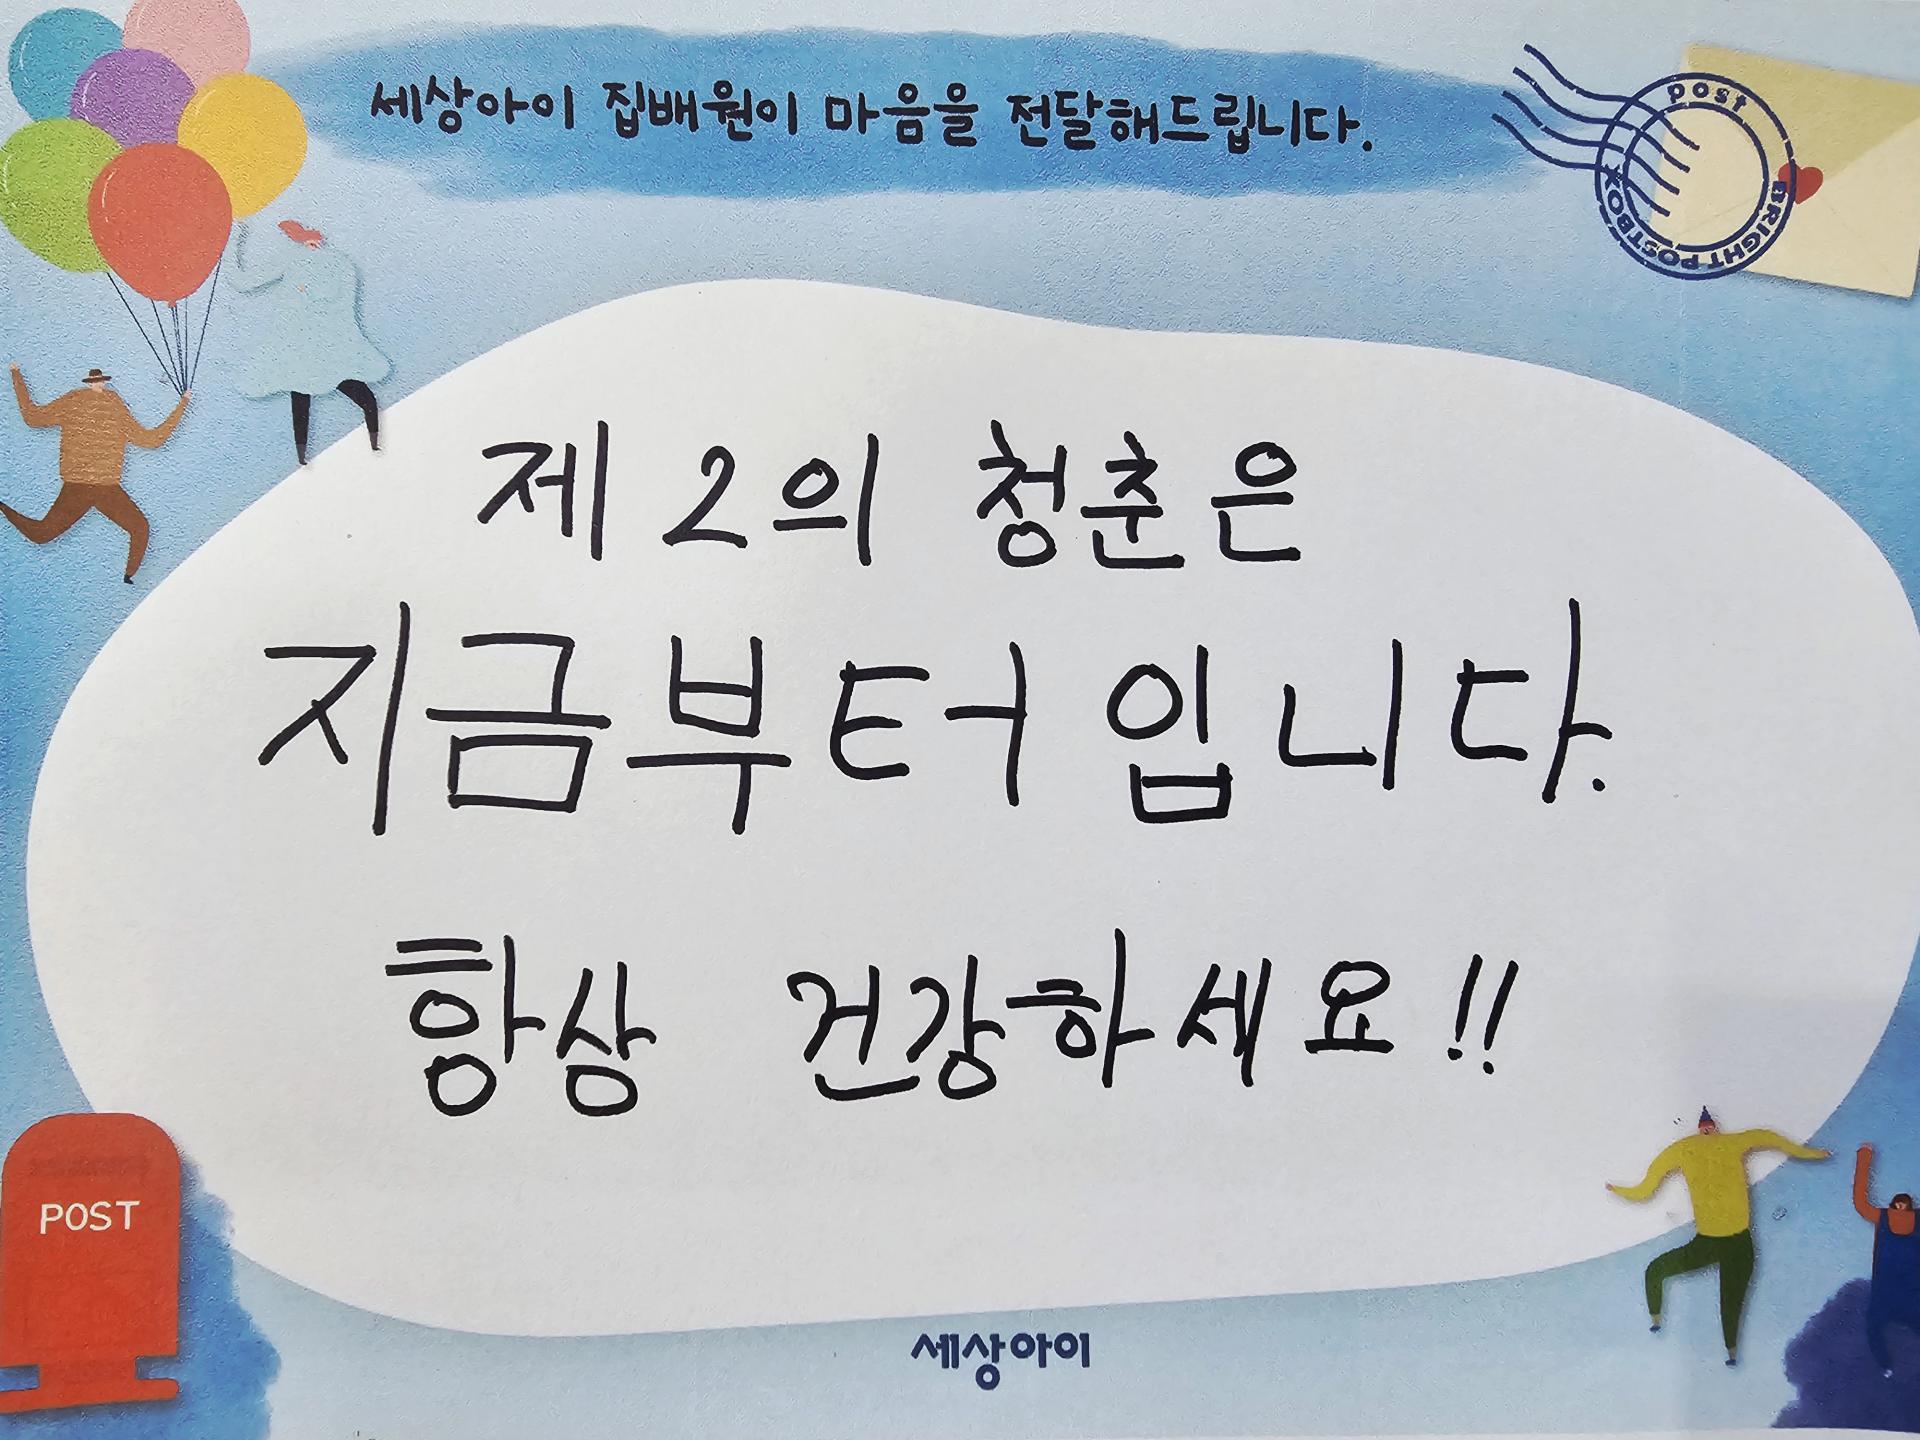 세상아이 집배원이 마음을 전달해드립니다.
post
BRIGHT POSTBOX
제 2의 청춘은
지금부터입니다.
항상 건강하세요!!
POST
세상아이